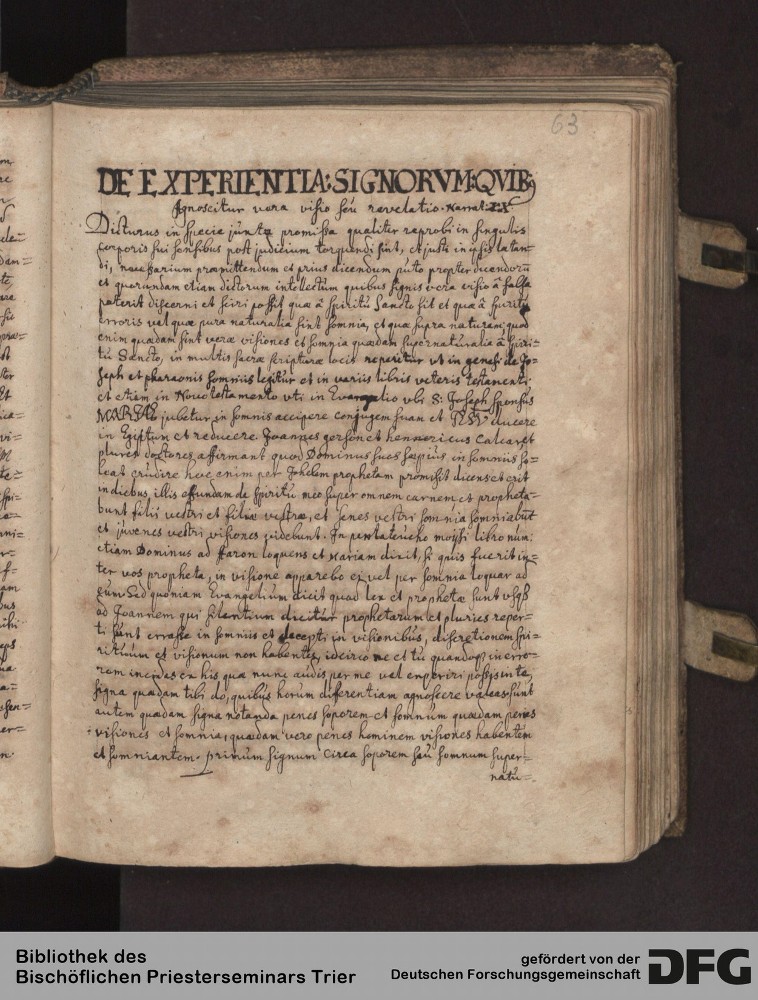 63
DE EXPERIENTIA: SIGNORVM: QVIB9
Agnoscitur vera visio seu revelatio. Narrat: IX
Dicturus in specie juxta promissa qualiter reprobi in singulis
corporis sui sensibus post judicium torquendi sint, et justi in ipsis lætan-
di, necessarium præmittendum et prius dicendum puto propter dicendorũ
et quorundam etiam dictorum intellectum quibus signis vera visio â falsa
poterit discerni et sciri possit quæ â Spiritu Sancto sit et quæ â spiritu
erroris vel quæ pura naturalia sint somnia, et quæ supra naturam; quod
enim quædam sint veræ visiones et somnia quædam supernaturalia â spiri-
tu Sancto, in multis sacræ scripturæ locis reperitur vt in genesi de Jo-
seph et pharaonis somniis legitur et in variis libris veteris testamenti
et etiam in Novo testamento vti in Evangelio vbi S: Joseph sponsus
MARIAE jubetur in somnis accipere conjugem suam et JESV ducere
in Egiptum et reducere. Joannes gerson et hennericus Calcaret
plures doctores affirmant quod Dominus suos sæpius in somniis so-
leat erudire hoc enim per Johelem prophetam promisit dicens et erit
in diebus, illis effundam de spiritu meo super omnem carnem et propheta-
bunt filii vestri et filiæ vestræ, et senes vestri somnia somniabũt
et juvenes vestri visiones videbunt. In pentateucho moysi libro num:
etiam Dominus ad Aaron loquens et Mariam dixit, si quis fuerit in-
ter vos propheta, in visione apparebo ei vel per somnia loquar ad
eum Sed quoniam Evangelium dicit quod lex et prophetæ sunt vsq3
ad Joannem qui silentium dicitur prophetarum et plures reper-
ti sunt errasse in somniis et decepti in visionibus, discretionem spi-
rituum et visionum non habentes, idcirco ne et tu quandoq3 in erro-
rem incidas ex his quæ nunc audis per me vel experiri possis in te,
signa quædam tibi do, quibus horum differentiam agnoscere valeas sunt
autem quædam signa notanda penes soporem et somnum quædam penes
visiones et somnia, quædam vero penes hominem visiones habentem
et somniantem. primum signum circa soporem seu somnum super-
natu-
Bibliothek des
Bischöflichen Priesterseminars Trier
gefördert von der
Deutschen Forschungsgemeinschaft
DFG